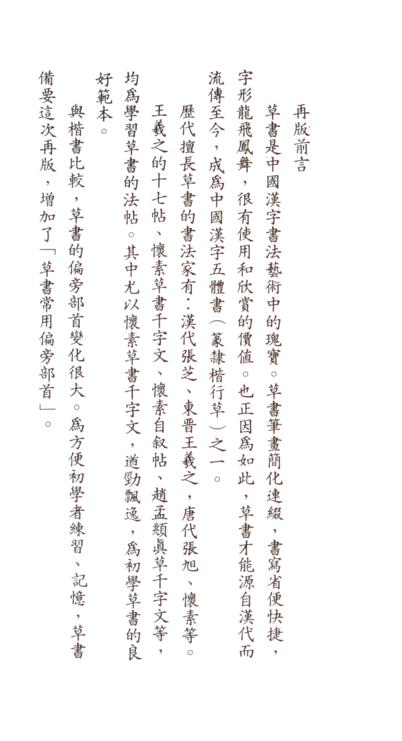 再版前言
草書是中國漢字書法藝術中的瑰寶。草書筆畫簡化連綴，書寫省便快捷，
字形龍飛鳳舞，很有使用和欣賞的價值。也正因爲如此，草書才能源自漢代而
流傳至今，成爲中國漢字五體書（篆隸楷行草）之一。
歷代擅長草書的書法家有：漢代張芝、東晋王羲之，唐代張旭、懷素等。
王羲之的十七帖、懷素草書千字文、懷素自叙帖、趙孟頫真草千字文等，
均爲學習草書的法帖。其中尤以懷素草書千字文，遒勁飄逸，爲初學草書的良
好範本。
與楷書比較，草書的偏旁部首變化很大。爲方便初學者練習、記憶，草書
備要這次再版，增加了「草書常用偏旁部首」。